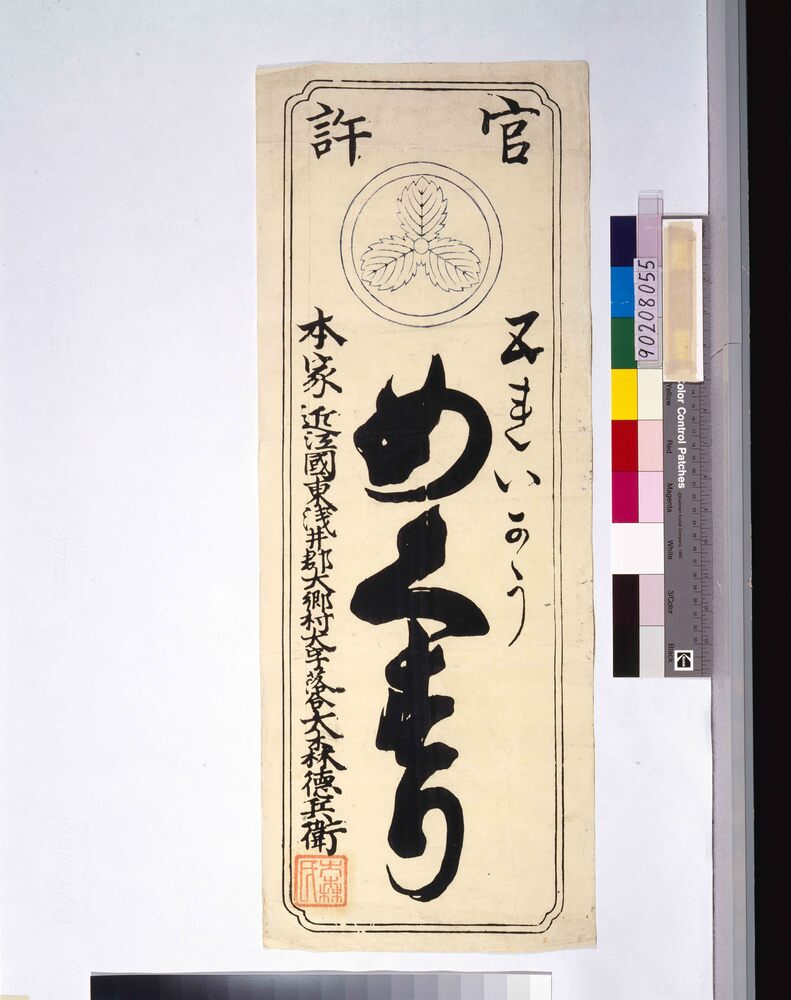 官許
五れいかう
めくすり
本家 近江國東浅井郡大郷村大字落合大森徳兵衛
大森氏
90208055
Color Control Patches
Yellow
Red
Magenta
White
3/Color
Black